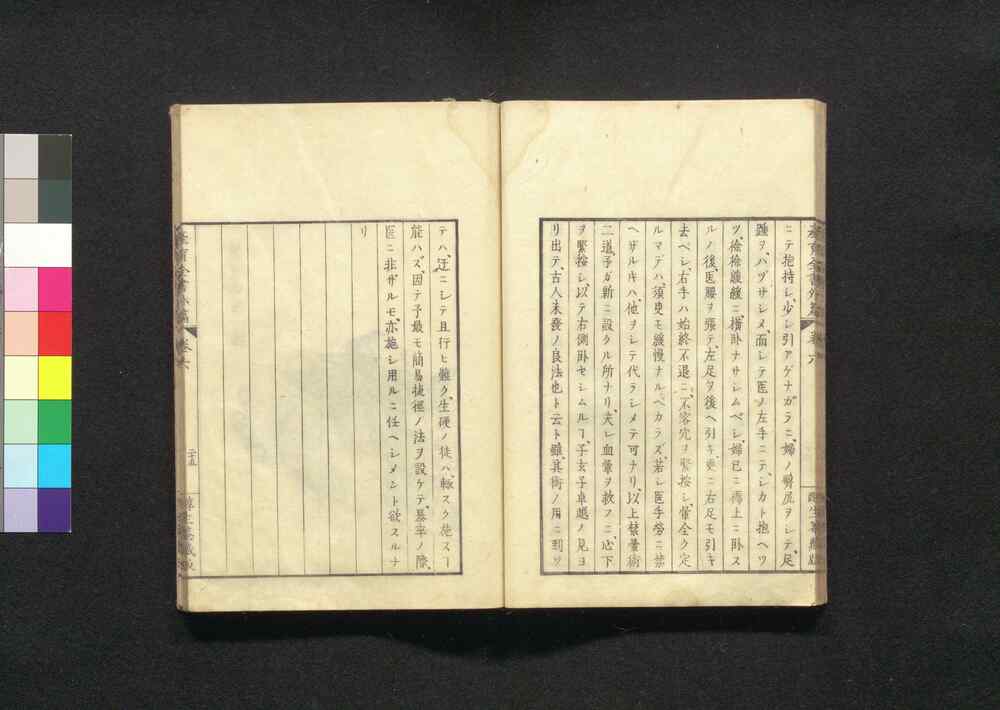 ニテ抱持シ、少シ引アゲナガラニ、婦ノ臀尻ヲシテ、足
踵ヲハヅサシメ、而シテ医ノ左手ニテ、シカト抱ヘツ
ツ、徐徐緩緩ニ、横卧ナサシムベシ、婦已ニ褥上ニ卧ス
ルノ後、医腰ヲ張テ、左足ヲ後ヘ引キ、更ニ右足モ引キ
去ベシ、右手ハ始終不退ニ、不容穴ヲ緊按シ、暈全ク定
ルマデハ、須臾モ緩慢ナルベカラズ、若シ医手労ニ禁
ヘザルキハ、他ヲシテ代ラシメテ可ナリ、以上禁暈術
二道、予ガ新ニ設クル所ナリ、夫レ血暈ヲ救フニ、心下
ヲ緊按シ、以テ右側卧セシムルヿ、子玄子卓越ノ見ヨ
リ出テ、古人未發ノ良法也ト云ト雖、其術ノ用ニ到ツ
テハ、迂ニシテ且行ヒ難ク、生硬ノ徒ハ、輙スク施スヿ
能ハズ、因テ予最モ簡易捷徑ノ法ヲ設ケテ、暴卒ノ際、
医ニ非ザルモ、亦施シ用ルニ任ヘシメント欲スルナ
リ
全書外篇 卷六
二十五